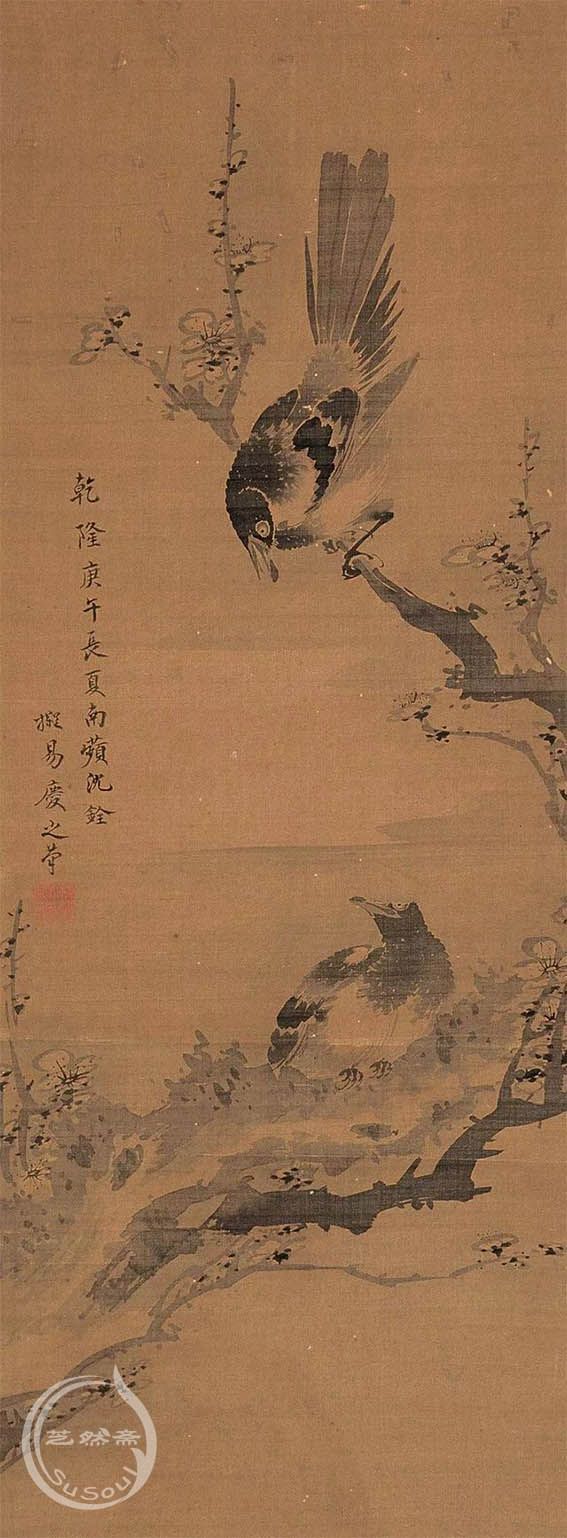 乾隆庚午長夏南蘋沈銓
擬易慶之筆
芝然斋
SuSoul